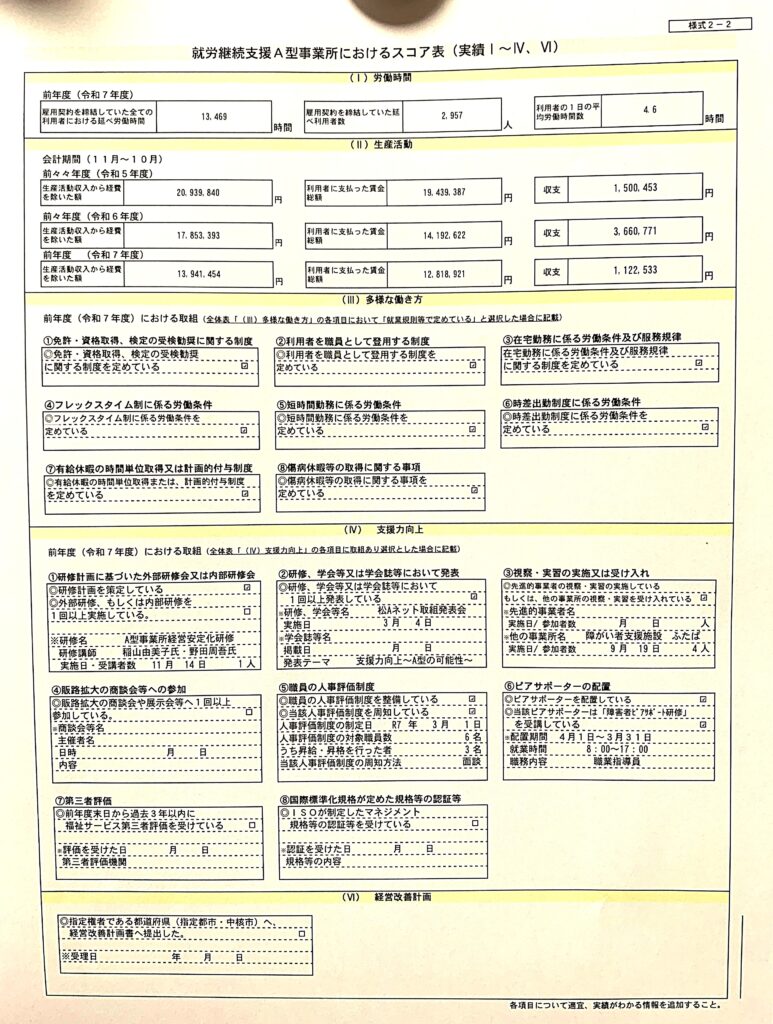 様式2-2
就労継続支援A型事業所におけるスコア表（実績Ⅰ～Ⅳ、Ⅵ）
（Ⅰ）労働時間
前年度（令和7年度）
雇用契約を締結していた全ての利用者における延べ労働時間 13,469 時間 雇用契約を締結していた延べ利用者数 2,957 人 利用者の1日の平均労働時間数 4.6 時間
（Ⅱ）生産活動
会計期間（11月～10月）
前々々年度（令和5年度）
生産活動収入から経費を除いた額 20,939,840 円 利用者に支払った賃金総額 19,439,387 円 収支 1,500,453 円
前々年度（令和6年度）
生産活動収入から経費を除いた額 17,853,393 円 利用者に支払った賃金総額 14,192,622 円 収支 3,660,771 円
前年度（令和7年度）
生産活動収入から経費を除いた額 13,941,454 円 利用者に支払った賃金総額 12,818,921 円 収支 1,122,533 円
（Ⅲ）多様な働き方
前年度（令和7年度）における取組（全体表「（Ⅲ）多様な働き方」の各項目において「就業規則等で定めている」と選択した場合に記載）
①免許・資格取得、検定の受検勧奨に関する制度
◎免許・資格取得、検定の受検勧奨
に関する制度を定めている ☑
②利用者を職員として登用する制度
◎利用者を職員として登用する制度を
定めている ☑
③在宅勤務に係る労働条件及び服務規律
在宅勤務に係る労働条件及び服務規律
に関する制度を定めている ☑
④フレックスタイム制に係る労働条件
◎フレックスタイム制に係る労働条件を
定めている ☑
⑤短時間勤務に係る労働条件
◎短時間勤務に係る労働条件を
定めている ☑
⑥時差出勤制度に係る労働条件
◎時差出勤制度に係る労働条件を
定めている ☑
⑦有給休暇の時間単位取得又は計画的付与制度
◎有給休暇の時間単位取得または、計画的付与制度
を定めている ☑
⑧傷病休暇等の取得に関する事項
◎傷病休暇等の取得に関する事項を
定めている ☑
（Ⅳ） 支援力向上
前年度（令和7年度）における取組（全体表「（Ⅳ）支援力向上」の各項目に取組あり選択とした場合に記載）
①研修計画に基づいた外部研修会又は内部研修会
◎研修計画を策定している ☑
◎外部研修、もしくは内部研修を
1回以上実施している。 □
※研修名 A型事業所経営安定化研修
研修講師 稲山由美子氏・野田周吾氏
実施日・受講者数 11月 14日 1人
②研修、学会等又は学会誌等において発表
◎研修、学会等又は学会誌等において
1回以上発表している ☑
※研修、学会等名 松Aネット取組発表会
実施日 3月 4日
※学会誌等名
掲載日 月 日
発表テーマ 支援力向上～A型の可能性～
③視察・実習の実施又は受け入れ
◎先進的事業者の視察・実習の実施している
もしくは、他の事業所の視察・実習を受け入れている ☑
※先進的事業者名
実施日/参加者数 月 日 人
※他の事業所名 障がい者支援施設 ふたば
実施日/参加者数 9月 19日 4人
④販路拡大の商談会等への参加
◎販路拡大の商談会や展示会等へ1回以上
参加している。 □
※商談会等名
主催者名
日時 月 日
内容
⑤職員の人事評価制度
◎職員の人事評価制度を整備している ☑
◎当該人事評価制度を周知している ☑
人事評価制度の制定日 R7年 3月 1日
人事評価制度の対象職員数 6名
うち昇給・昇格を行った者 3名
当該人事評価制度の周知方法 面談
⑥ピアサポーターの配置
◎ピアサポーターを配置している ☑
◎当該ピアサポーターは「障害者ピアサポート研修」
を受講している ☑
※配置期間 4月1日～3月31日
就業時間 8：00～17：00
職務内容 職業指導員
⑦第三者評価
◎前年度末日から過去3年以内に
福祉サービス第三者評価を受けている □
※評価を受けた日 月 日
第三者評価機関
⑧国際標準化規格が定めた規格等の認証等
◎ISOが制定したマネジメント
規格等の認証等を受けている □
※認証を受けた日 月 日
規格等の内容
（Ⅵ） 経営改善計画
◎指定権者である都道府県（指定都市・中核市）へ、
経営改善計画書へ提出した。 □
※受理日 年 月 日
各項目について適宜、実績がわかる情報を追加すること。